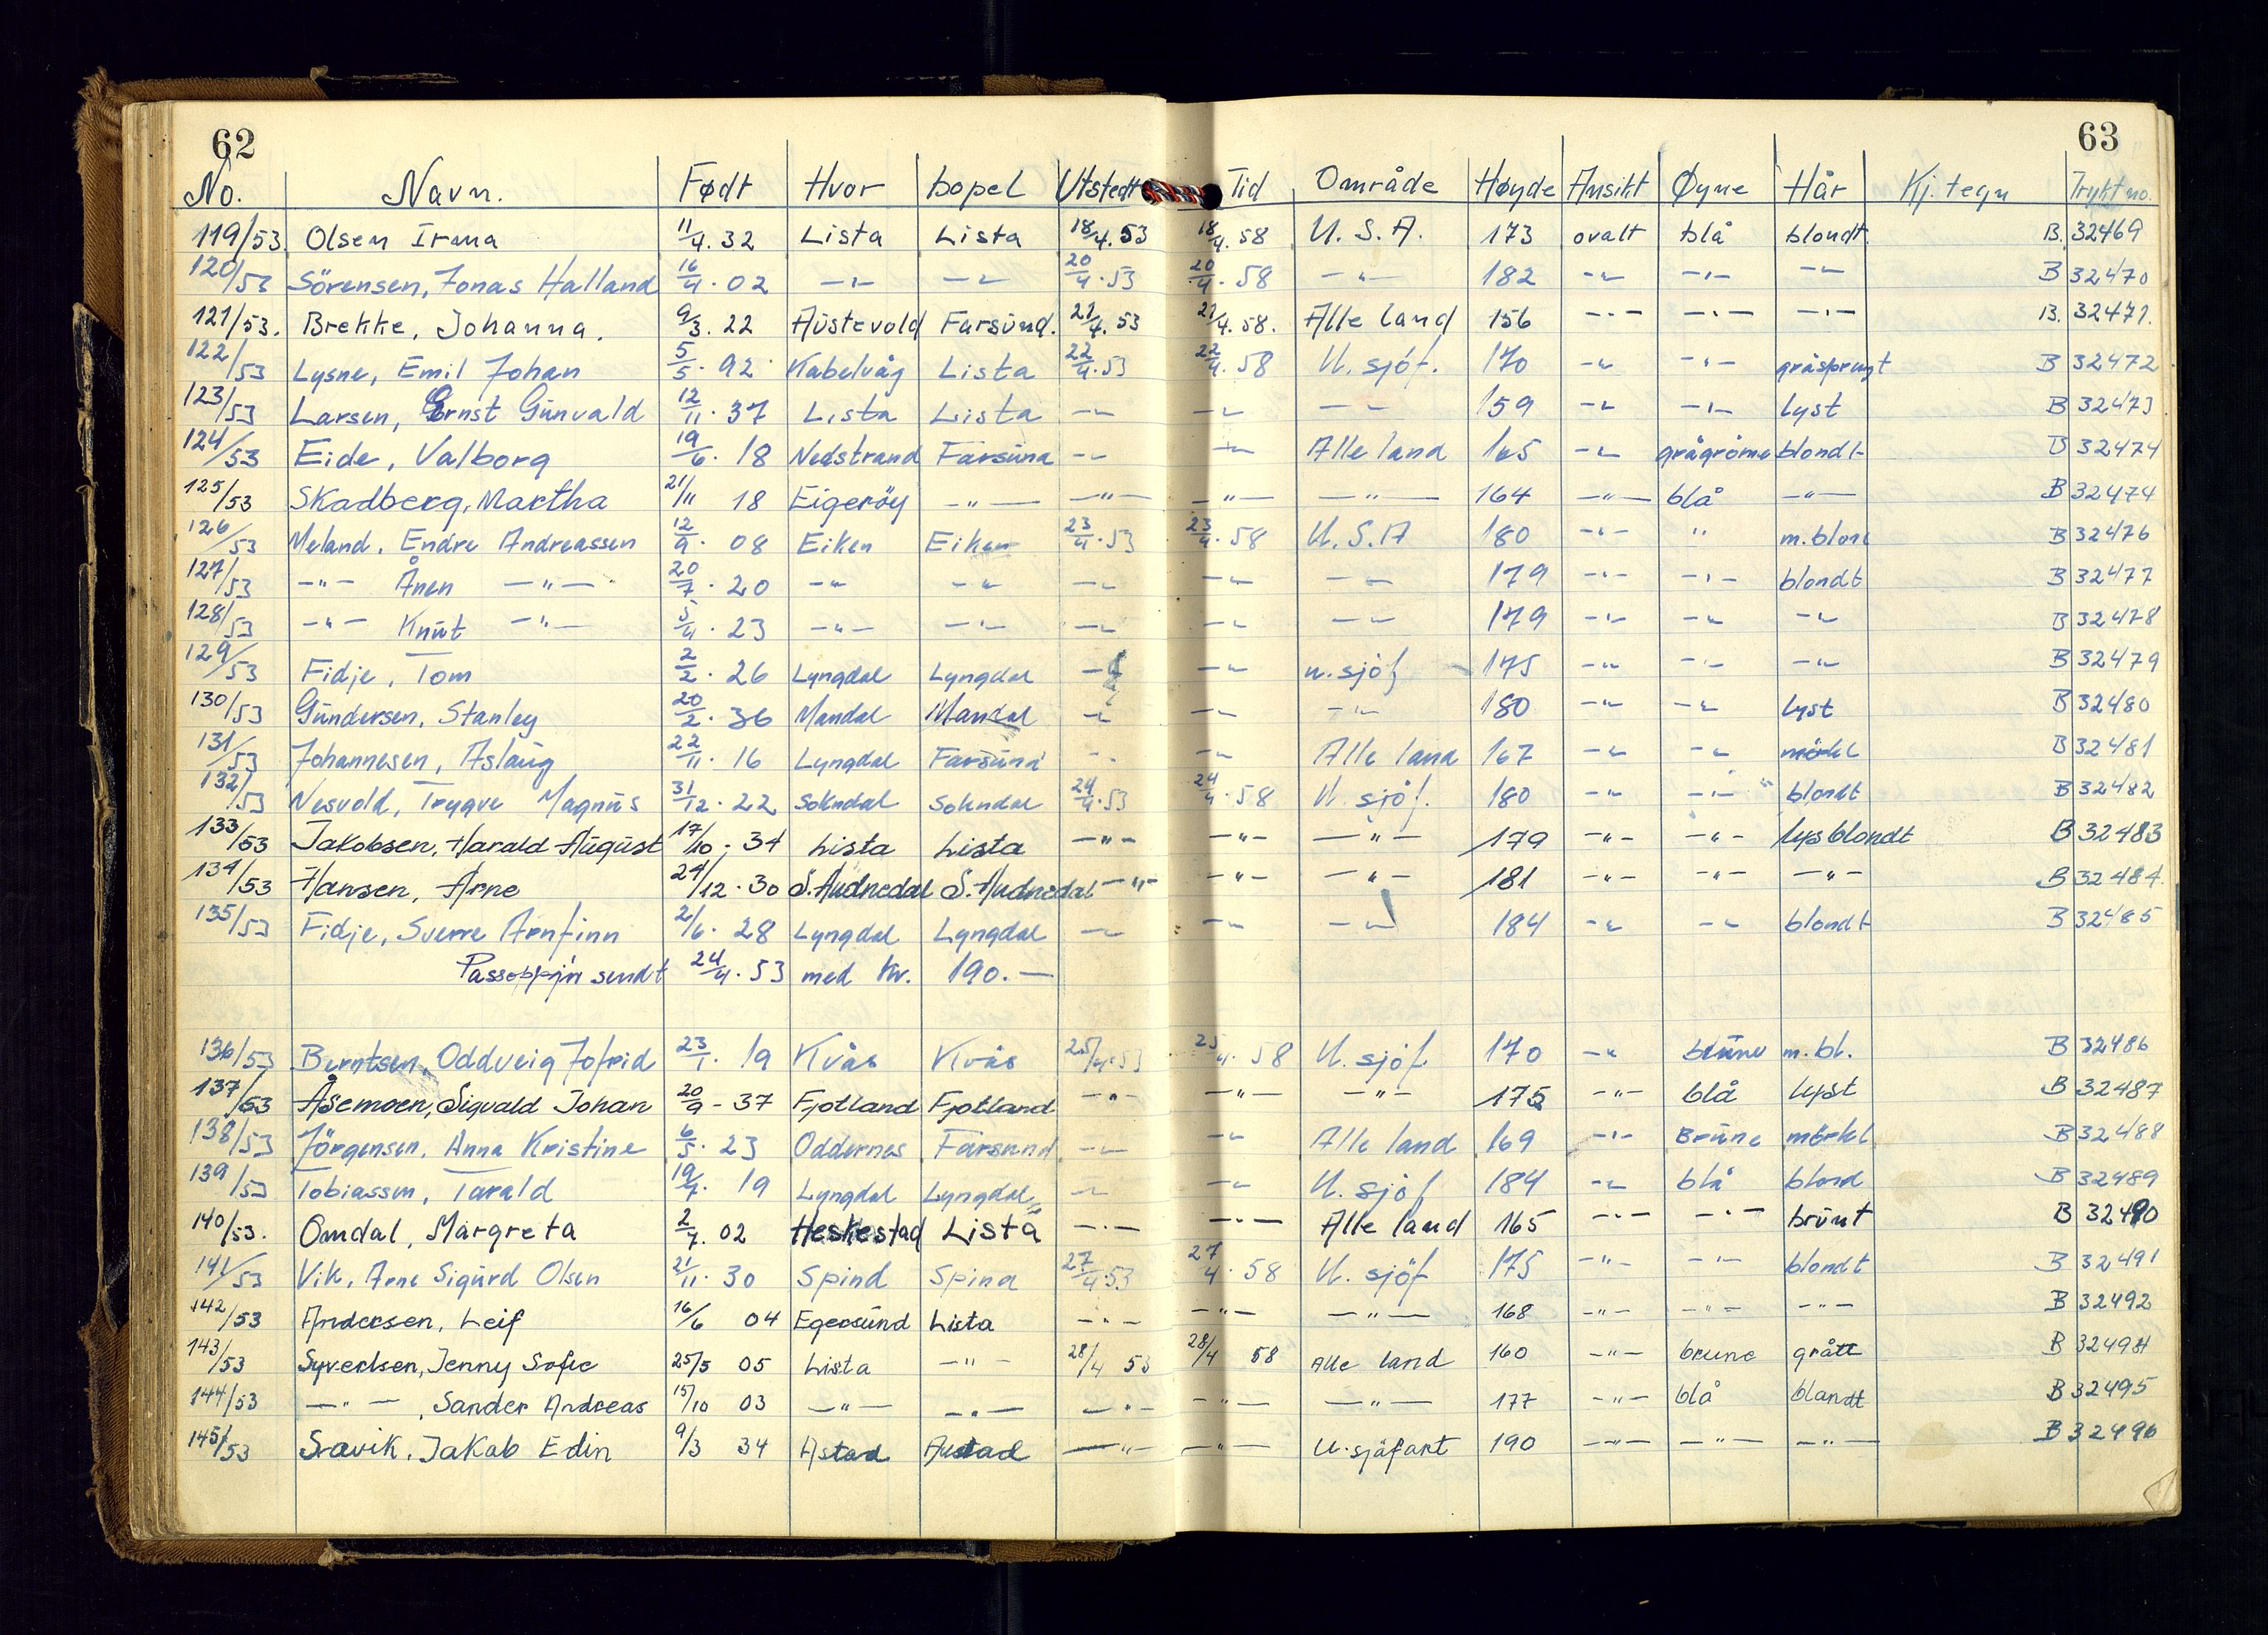 62 63
No. Navn. Født Hvor bopel Utstedt Tid Område Høyde Ansikt Øyne Hår Kj. tegn Trykt no.
119/53. Olsen Irma 11/4. 32 Lista Lista 18/4. 53 18/4. 58 U. S. A. 173 ovalt blå blondt. B. 32469
120/53 Sörensen, Jonas Halland 16/4. 02 -"- -"- 20/4. 53 20/4. 58 -"- 182 -"- -"- -"- B 32470
121/53. Brekke, Johanna. 9/3. 22 Aústevold Farsúnd. 21/4. 53 21/4. 58. Alle land 156 -"- -"- -"- B. 32471.
122/53 Lysne, Emil Johan 5/5. 92 Kabelvåg Lista 22/4. 53 22/4. 58 U. sjöf. 170 -"- -"- gråsprengt B 32472
123/53 Larsen, Ernst Gúnvald 12/11. 37 Lista Lista -"- -"- -"- 159 -"- -"- lyst B 32473
124/53 Eide, Valborg 19/6. 18 Nedstrand Farsúnd -"- -"- Alle land 165 -"- blondt B 32474
125/53 Skadberg, Martha 21/11 18 Eigeröy -"- -"- -"- -"- 164 -"- blå -"- B 32474
126/53 Meland, Endre Andreassen 12/9. 08 Eiken Eiken 23/4. 53 23/4. 58 U. S. A 180 -"- " m. blond B 32476
127/53 -"- Ånen -"- 20/7. 20 -"- -"- -"- -"- -"- 179 -"- -"- blondt B 32477
128/53 -"- Knút -"- 5/4. 23 -"- -"- -"- -"- -"- 179 -"- -"- -"- B 32478
129/53 Fidje, Tom 2/2. 26 Lyngdal Lyngdal -"- -"- u. sjöf 175 -"- -"- -"- B 32479
130/53 Gúndersen, Stanley 20/2. 36 Mandal Mandal -"- -"- -"- 180 -"- -"- lyst B 32480
131/53 Johannesen, Aslaúg 22/11. 16 Lyngdal Farsúnd - -"- Alle land 167 -"- -"- mörkt B 32481
132/53 Nesvold, Trygve Magnús 31/12. 22 Sokndal Sokndal 24/4. 53 24/4. 58 U. sjöf. 180 -"- -"- blondt B 32482
133/53 Jakobsen, Harald Aúgúst 17/10. 34 Lista Lista -"- -"- -"- 179 -"- -"- lysblondt B 32483
134/53 Hansen, Arne 24/12. 30 S. Audnedal S. Audnedal -"- -"- -"- 181 -"- -"- -"- B 32484.
135/53 Fidje, Sverre Arnfinn 2/6. 28 Lyngdal Lyngdal -"- -"- -"- 184 -"- -"- blondt B 32485
Passoppgjör sendt 24/4. 53 med kr. 190.—
136/53 Berntsen, Oddveig Jofrid 23/1. 19 Kvås Kvås 25/4. 53 25/4. 58 U. sjöf. 170 -"- brúne m. bl. B 32486
137/53 Åsemoen, Sigvald Johan 20/9 - 37 Fjotland Fjotland -"- -"- -"- 175 -"- blå lyst B 32487
138/53 Jörgensen, Anna Kristine 6/5. 23 Oddernes Farsund -"- -"- Alle land 169 -"- Brúne mörkt B 32488
139/53 Tobiassen, Tarald 19/7. 19 Lyngdal Lyngdal -"- -"- U. sjöf 184 -"- blå blond B 32489
140/53. Omdal, Margreta 2/7. 02 Heskestad Lista -"- -"- Alle land 165 -"- -"- brúnt B 32490
141/53 Vik, Arne Sigúrd Olsen 21/11. 30 Spind Spind 27/4. 53 27/4. 58 U. sjöf 175 -"- -"- blondt B 32491
142/53 Andersen, Leif 16/6 04 Egersúnd Lista -"- -"- -"- 168 -"- -"- -"- B 32492
143/53 Syvertsen, Jenny Sofie 25/5 05 Lista -"- 28/4 53 28/4 58 Alle land 160 -"- brune grått B 32494
144/53 -"- , Sander Andreas 15/10 03 -"- -"- -"- -"- -"- 177 -"- blå blondt B 32495
145/53 Sravik, Jakob Edin 9/3 34 Astad Austad -"- -"- U. sjöfart 190 -"- -"- -"- B 32496